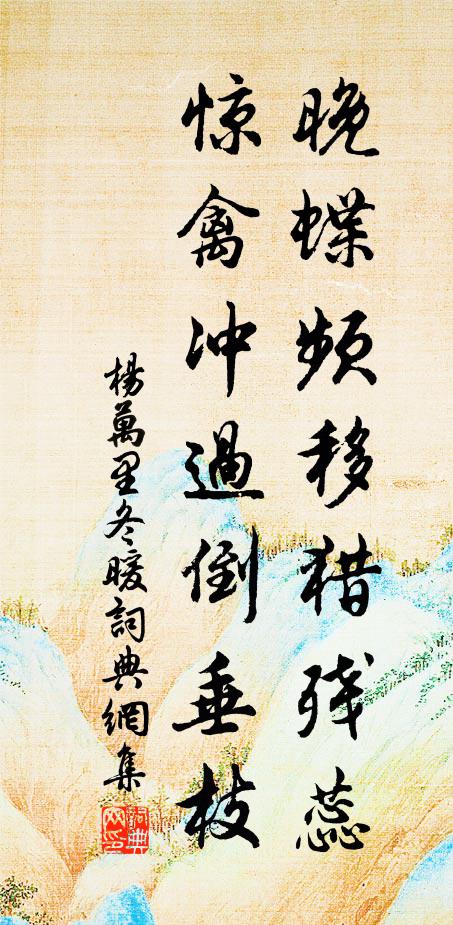 晚蝶频移猎残蕊
惊禽冲過倒垂枝
楊萬里冬暖詞典網集
詞典